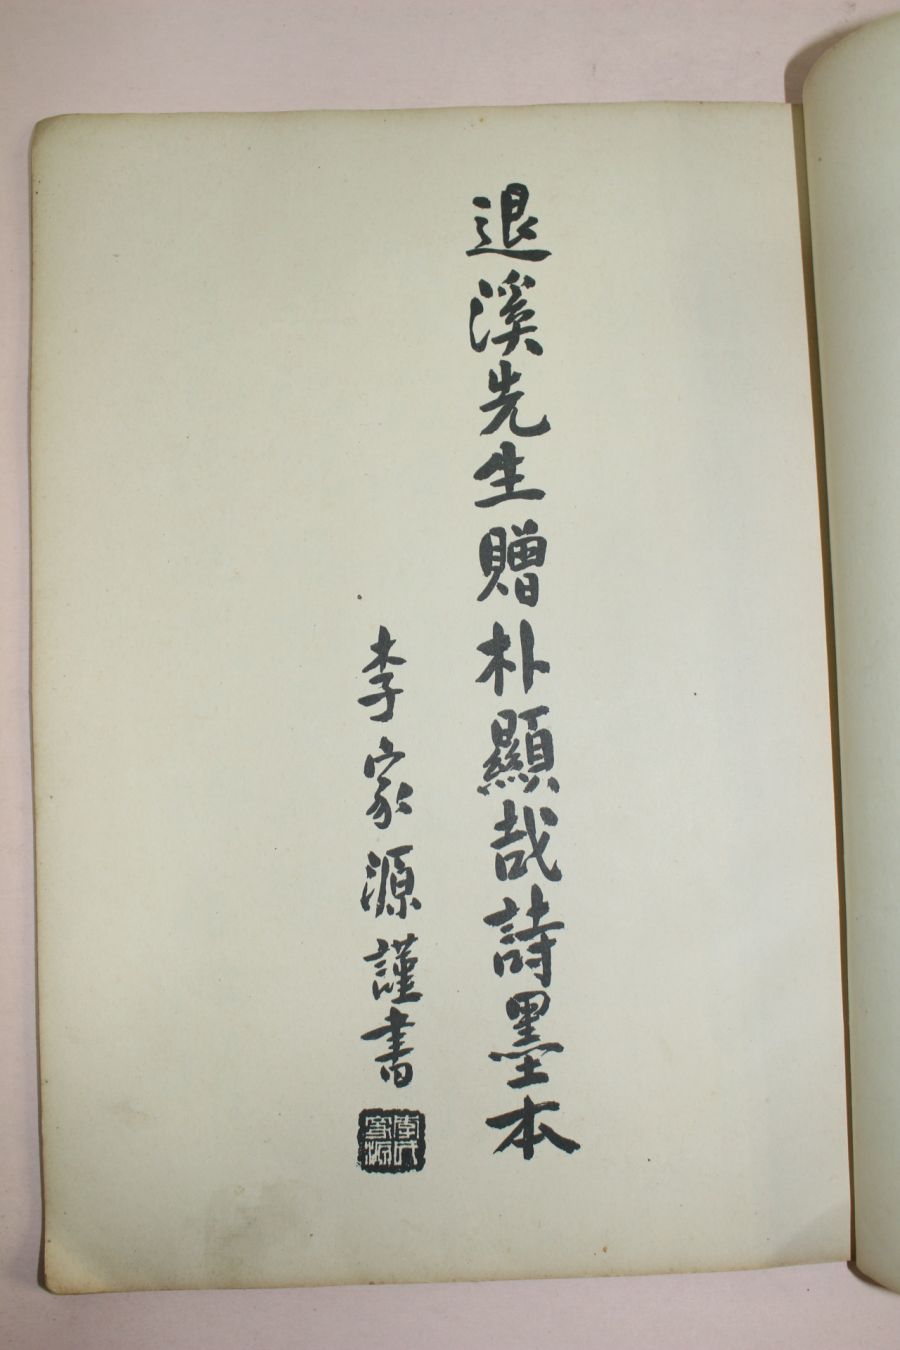 退溪先生贈朴顯哉詩墨本
李家源謹書
李氏
家源